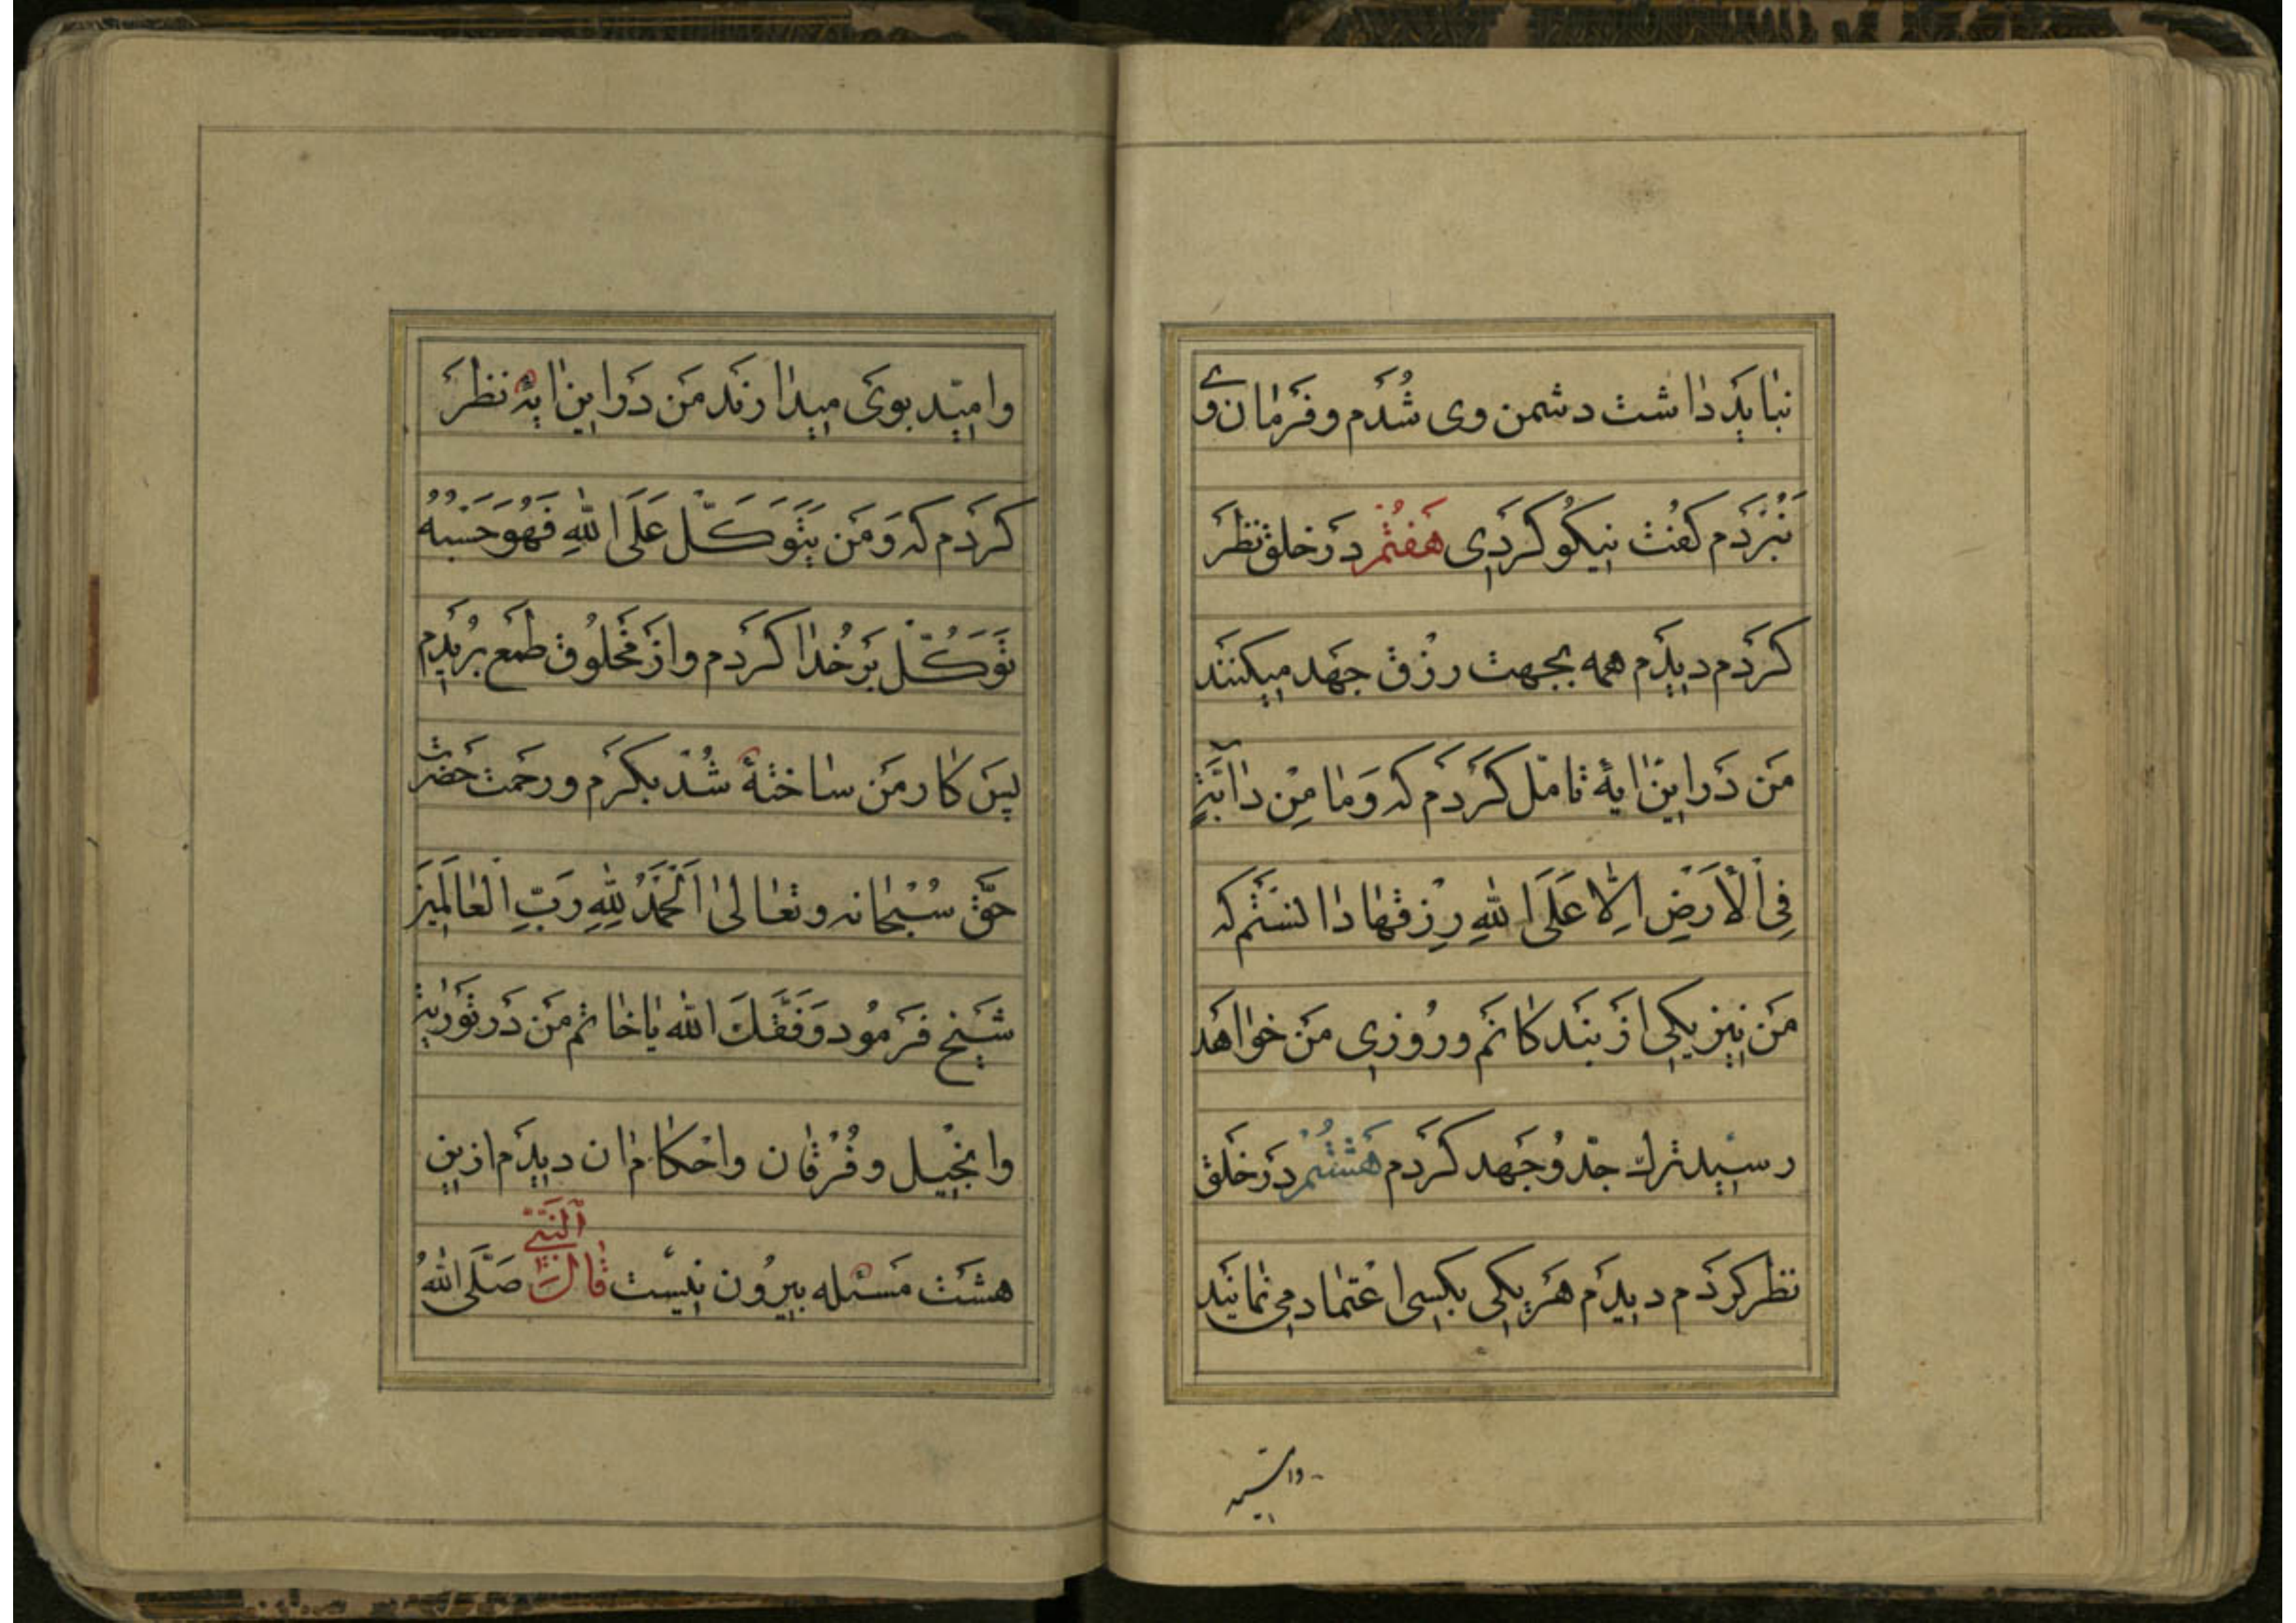 نباید داشت دشمن وی شدم و فرمان وی
نبردم کفت نیکو کردی هفتم در خلق نظر
کردم دیدم همه بجهت رزق جهد میکنند
من در این ایهٔ تامل کردم که وَمٰا مِنْ دٰابَّةٍ
فِی اْلاَرَضِ اِلّٰا عَلَی اللهِ رِزقهٰا دانستم که
من نیز یکی از بندکانم و روزی من خواهد
رسید ترک جدّ و جهد کردم هشتم در خلق
نظر کردم دیدم هر یکی بکسی اعتماد می نمایند
وامید
وامیّد بوی میدارند من در این ایهٔ نظر
کردم که وَمَن یَتَوَکَّل عَلَی اللهِ فَهُوَ حَسْبُهُ
تَوَکُّل بر خُدا کردم و از مخلوق طمع بریدم
پس کار من ساختهٔ شد بکرم و رحمت حضرت
حقّ سُبْحانه و تعالیٰ اَلْحَمْدُ لِلّٰهِ رَبِّ الْعٰالَمِینَ
شیخ فرمود وَفَّقَکَ الله یٰا خاتم من در توریة
وانجیل و فُرْقٰان و احکام ان دیدم ازین
هشت مسئله بیرون نیست قٰالَ النَّبِیّ صَلَّی اللهُ